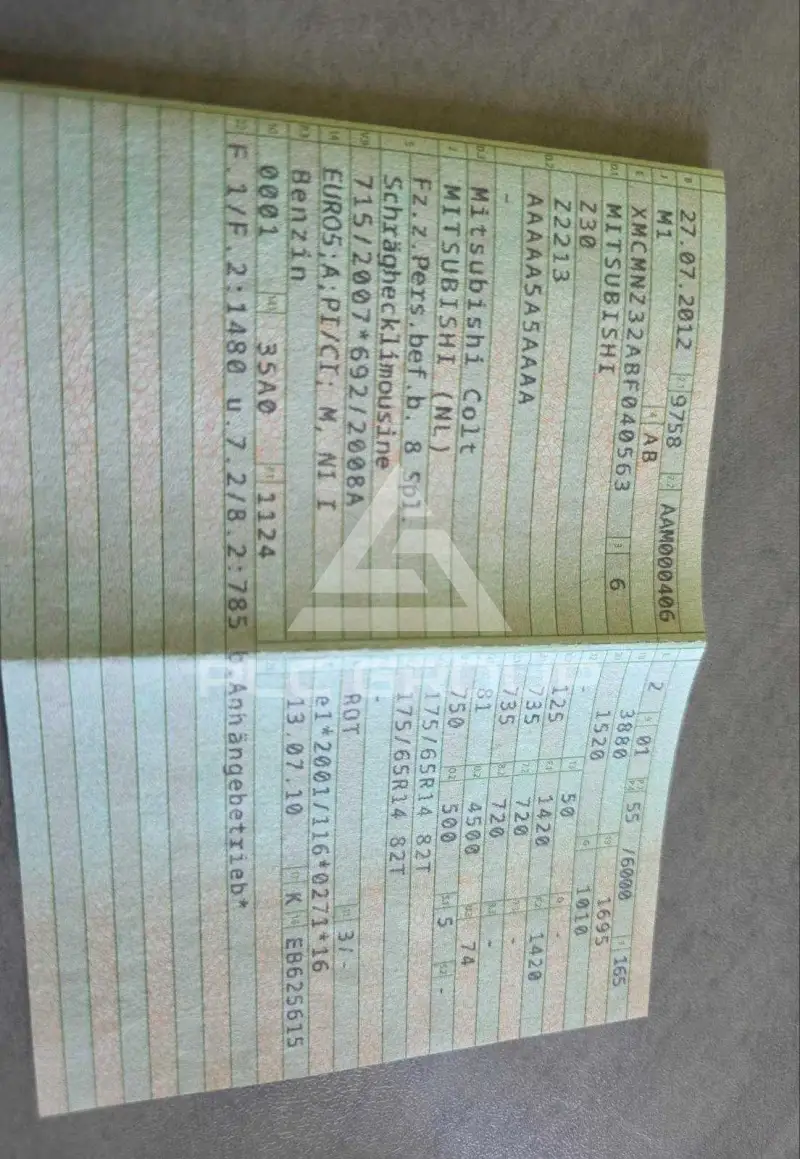 B 27.07.2012 2.1 9758 2.2 AAM000406
J M1 4 AB
E XMCMNZ32ABF040563 3 6
D.1 MITSUBISHI
D.2 Z30
Z2213
AAAAA5A5AAAA
-
D.3 Mitsubishi Colt
2 MITSUBISHI (NL)
5 Fz.z.Pers.bef.b. 8 Spl.
Schräghecklimousine
V.9 715/2007*692/2008A
14 EURO5;A;PI/CI; M, N1 I
P.3 Benzin
10 0001 14.1 35A0 P.1 1124
22 F.1/F.2:1480 u.7.2/8.2:785 b.Anhängebetrieb*
L 2 9 01 P.2 P.4 55 /6000 T 165
18 3880 19 1695
20 1520 G 1010
12 - 13 50 Q -
125 1420 1420
735 720 -
735 720 -
81 4500 74
750 O.2 500 S.1 5 S.2 -
175/65R14 82T
175/65R14 82T
-
ROT 11 3/-
e1*2001/116*0271*16
13.07.10 17 K 16 EB625615
PLC GROUP